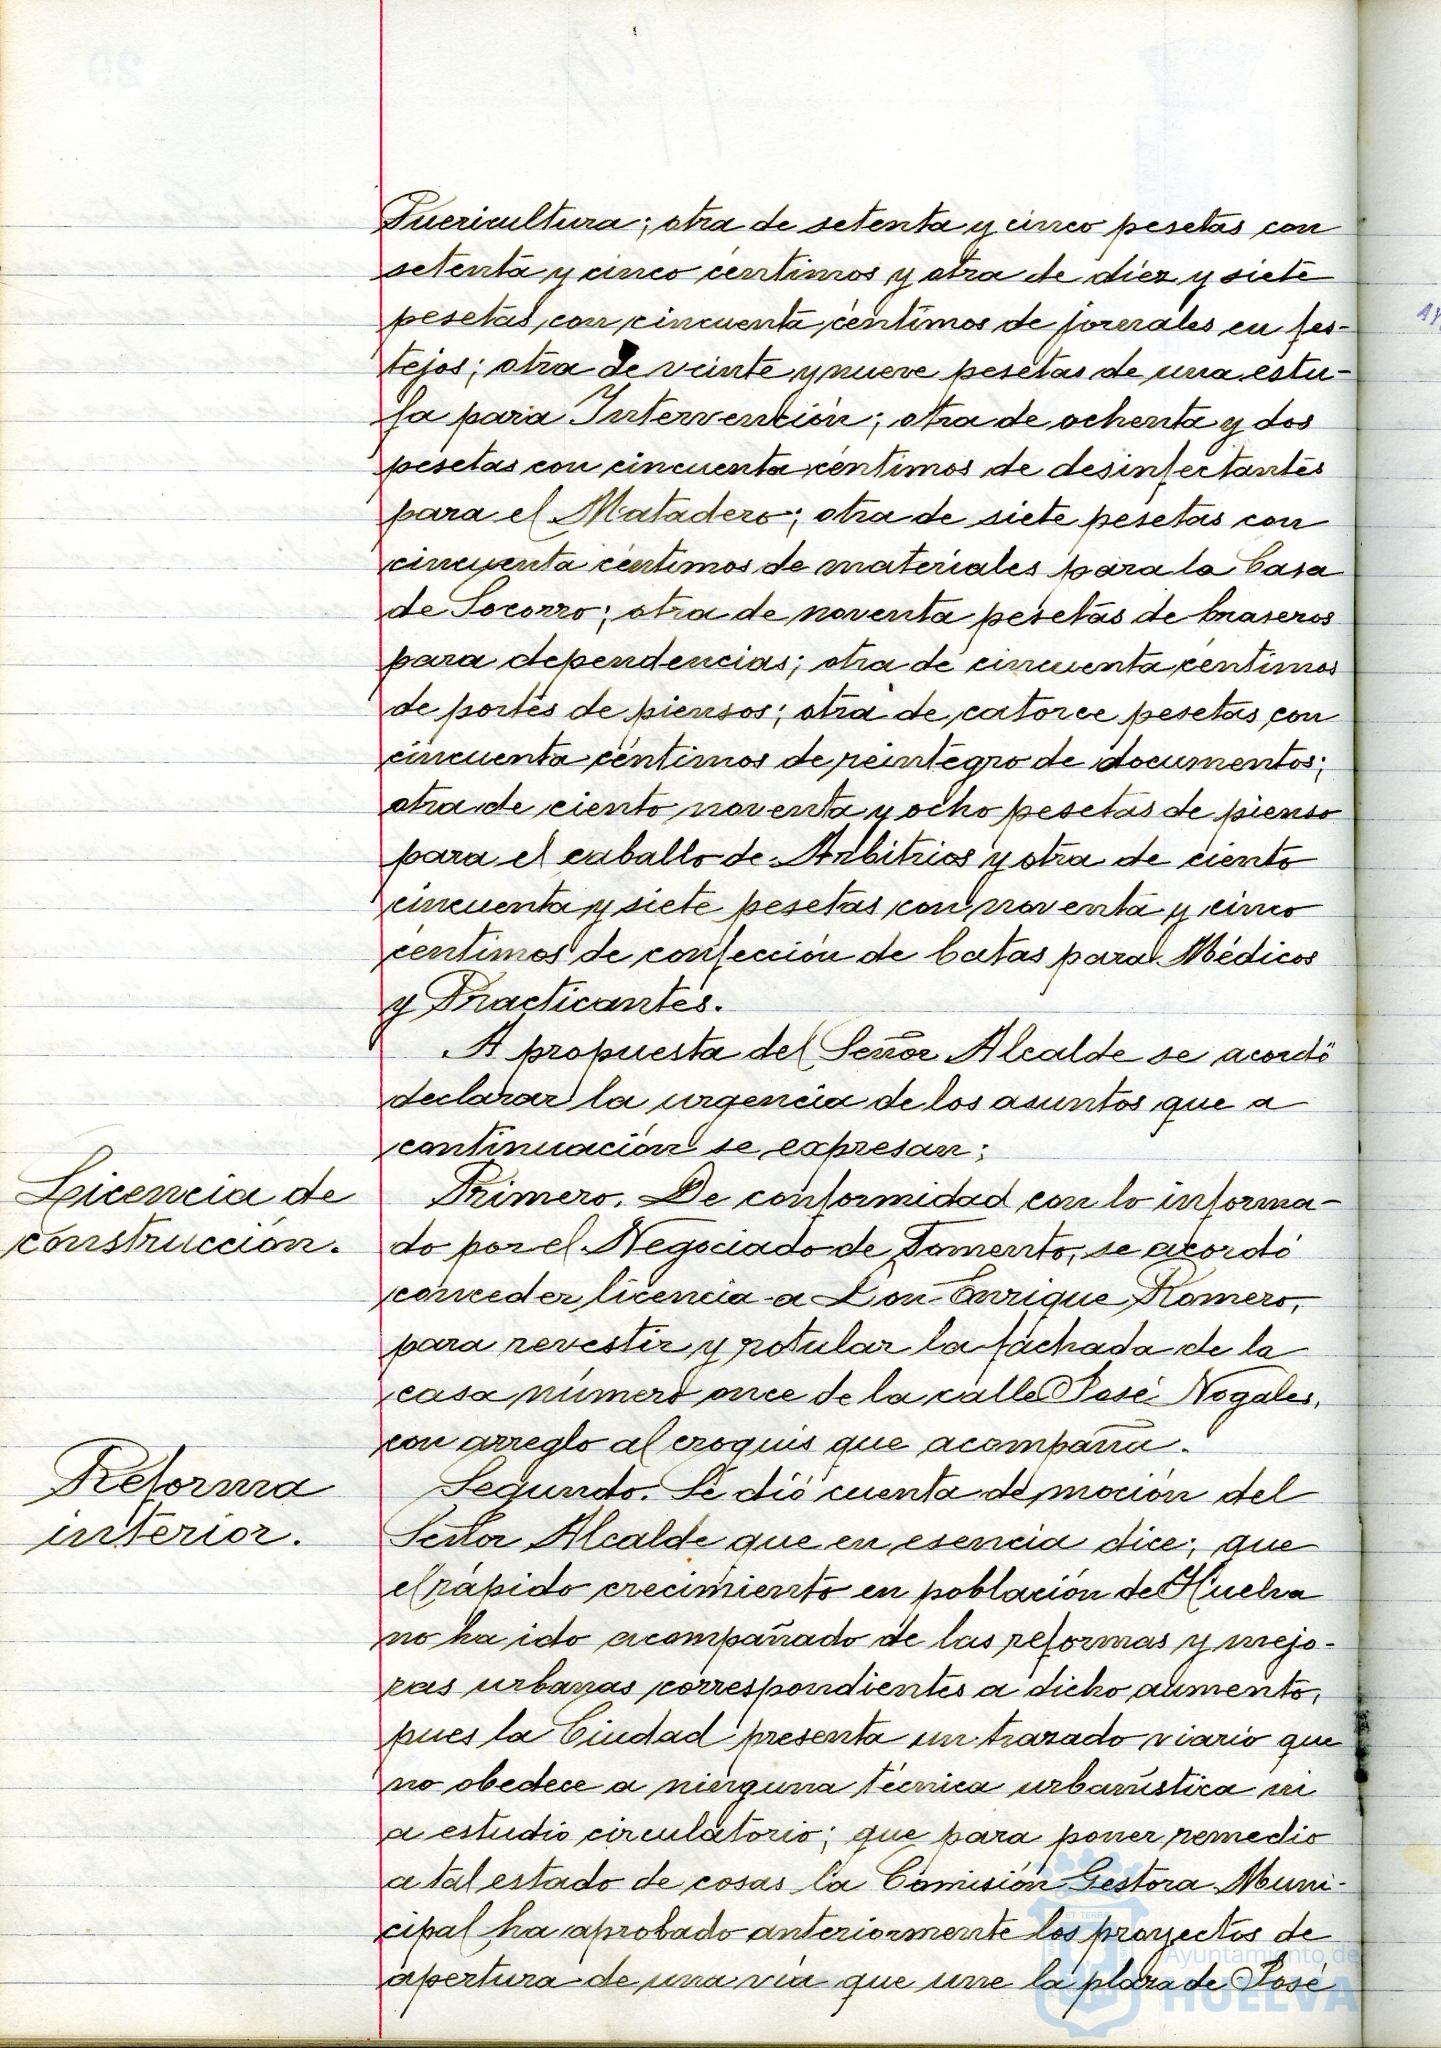 Puericultura; otra de setenta y cinco pesetas con
setenta y cinco céntimos y otra de diez y siete
pesetas con cincuenta céntimos de jornales en fes-
tejos; otra de veinte y nueve pesetas de una estu-
fa para Intervención; otra de ochenta y dos
pesetas con cincuenta céntimos de desinfectantes
para el Matadero; otra de siete pesetas con
cincuenta céntimos de materiales para la Casa
de Socorro; otra de noventa pesetas de braseros
para dependencias; otra de cincuenta céntimos
de portes de piensos; otra de catorce pesetas con
cincuenta céntimos de reintegro de documentos;
otra de ciento noventa y ocho pesetas de pienso
para el caballo de Arbitrios y otra de ciento
cincuenta y siete pesetas con noventa y cinco
céntimos de confección de batas para Médicos
y Practicantes.
A propuesta del Señor Alcalde se acordó
declarar la urgencia de los asuntos que a
continuación se expresan:
Licencia de
construcción.
Primero. De conformidad con lo informa-
do por el Negociado de Fomento, se acordó
conceder licencia a Don Enrique Romero,
para revestir y rotular la fachada de la
casa número once de la calle José Nogales,
con arreglo al croquis que acompaña.
Reforma
interior.
Segundo. Se dió cuenta de moción del
Señor Alcalde que en esencia dice; que
el rápido crecimiento en población de Huelva
no ha ido acompañado de las reformas y mejo-
ras urbanas correspondientes a dicho aumento,
pues la Ciudad presenta un trazado viario que
no obedece a ninguna técnica urbanística ni
a estudio circulatorio; que para poner remedio
a tal estado de cosas la Comisión Gestora Muni-
cipal ha aprobado anteriormente los proyectos de
apertura de una vía que une la plaza de José
Ayuntamiento de
HUELVA